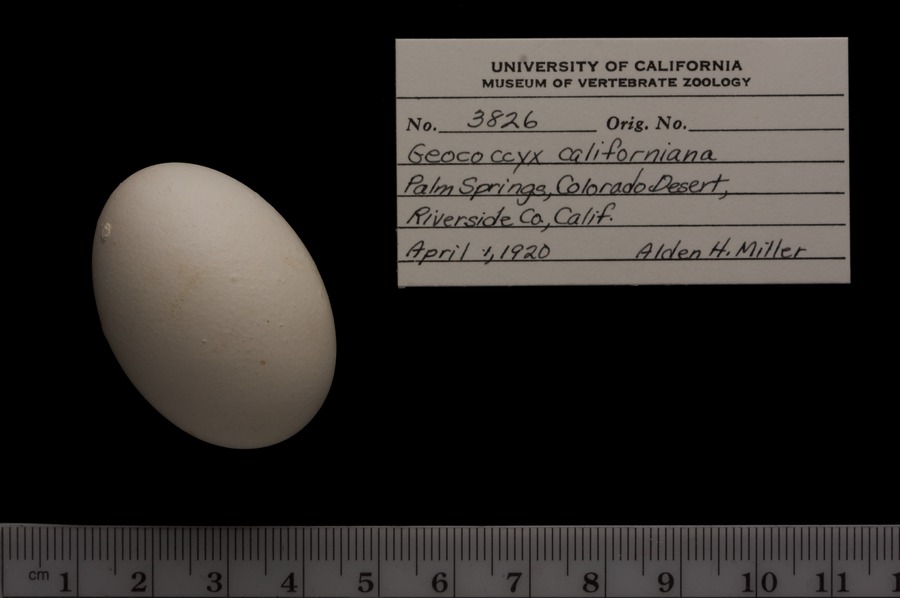 UNIVERSITY OF CALIFORNIA
MUSEUM OF VERTEBRATE ZOOLOGY
No. 3826 Orig. No.
Geococcyx californiana
Palm Springs, Colorado Desert,
Riverside Co., Calif.
April 1, 1920 Alden H. Miller
cm 1 2 3 4 5 6 7 8 9 10 11